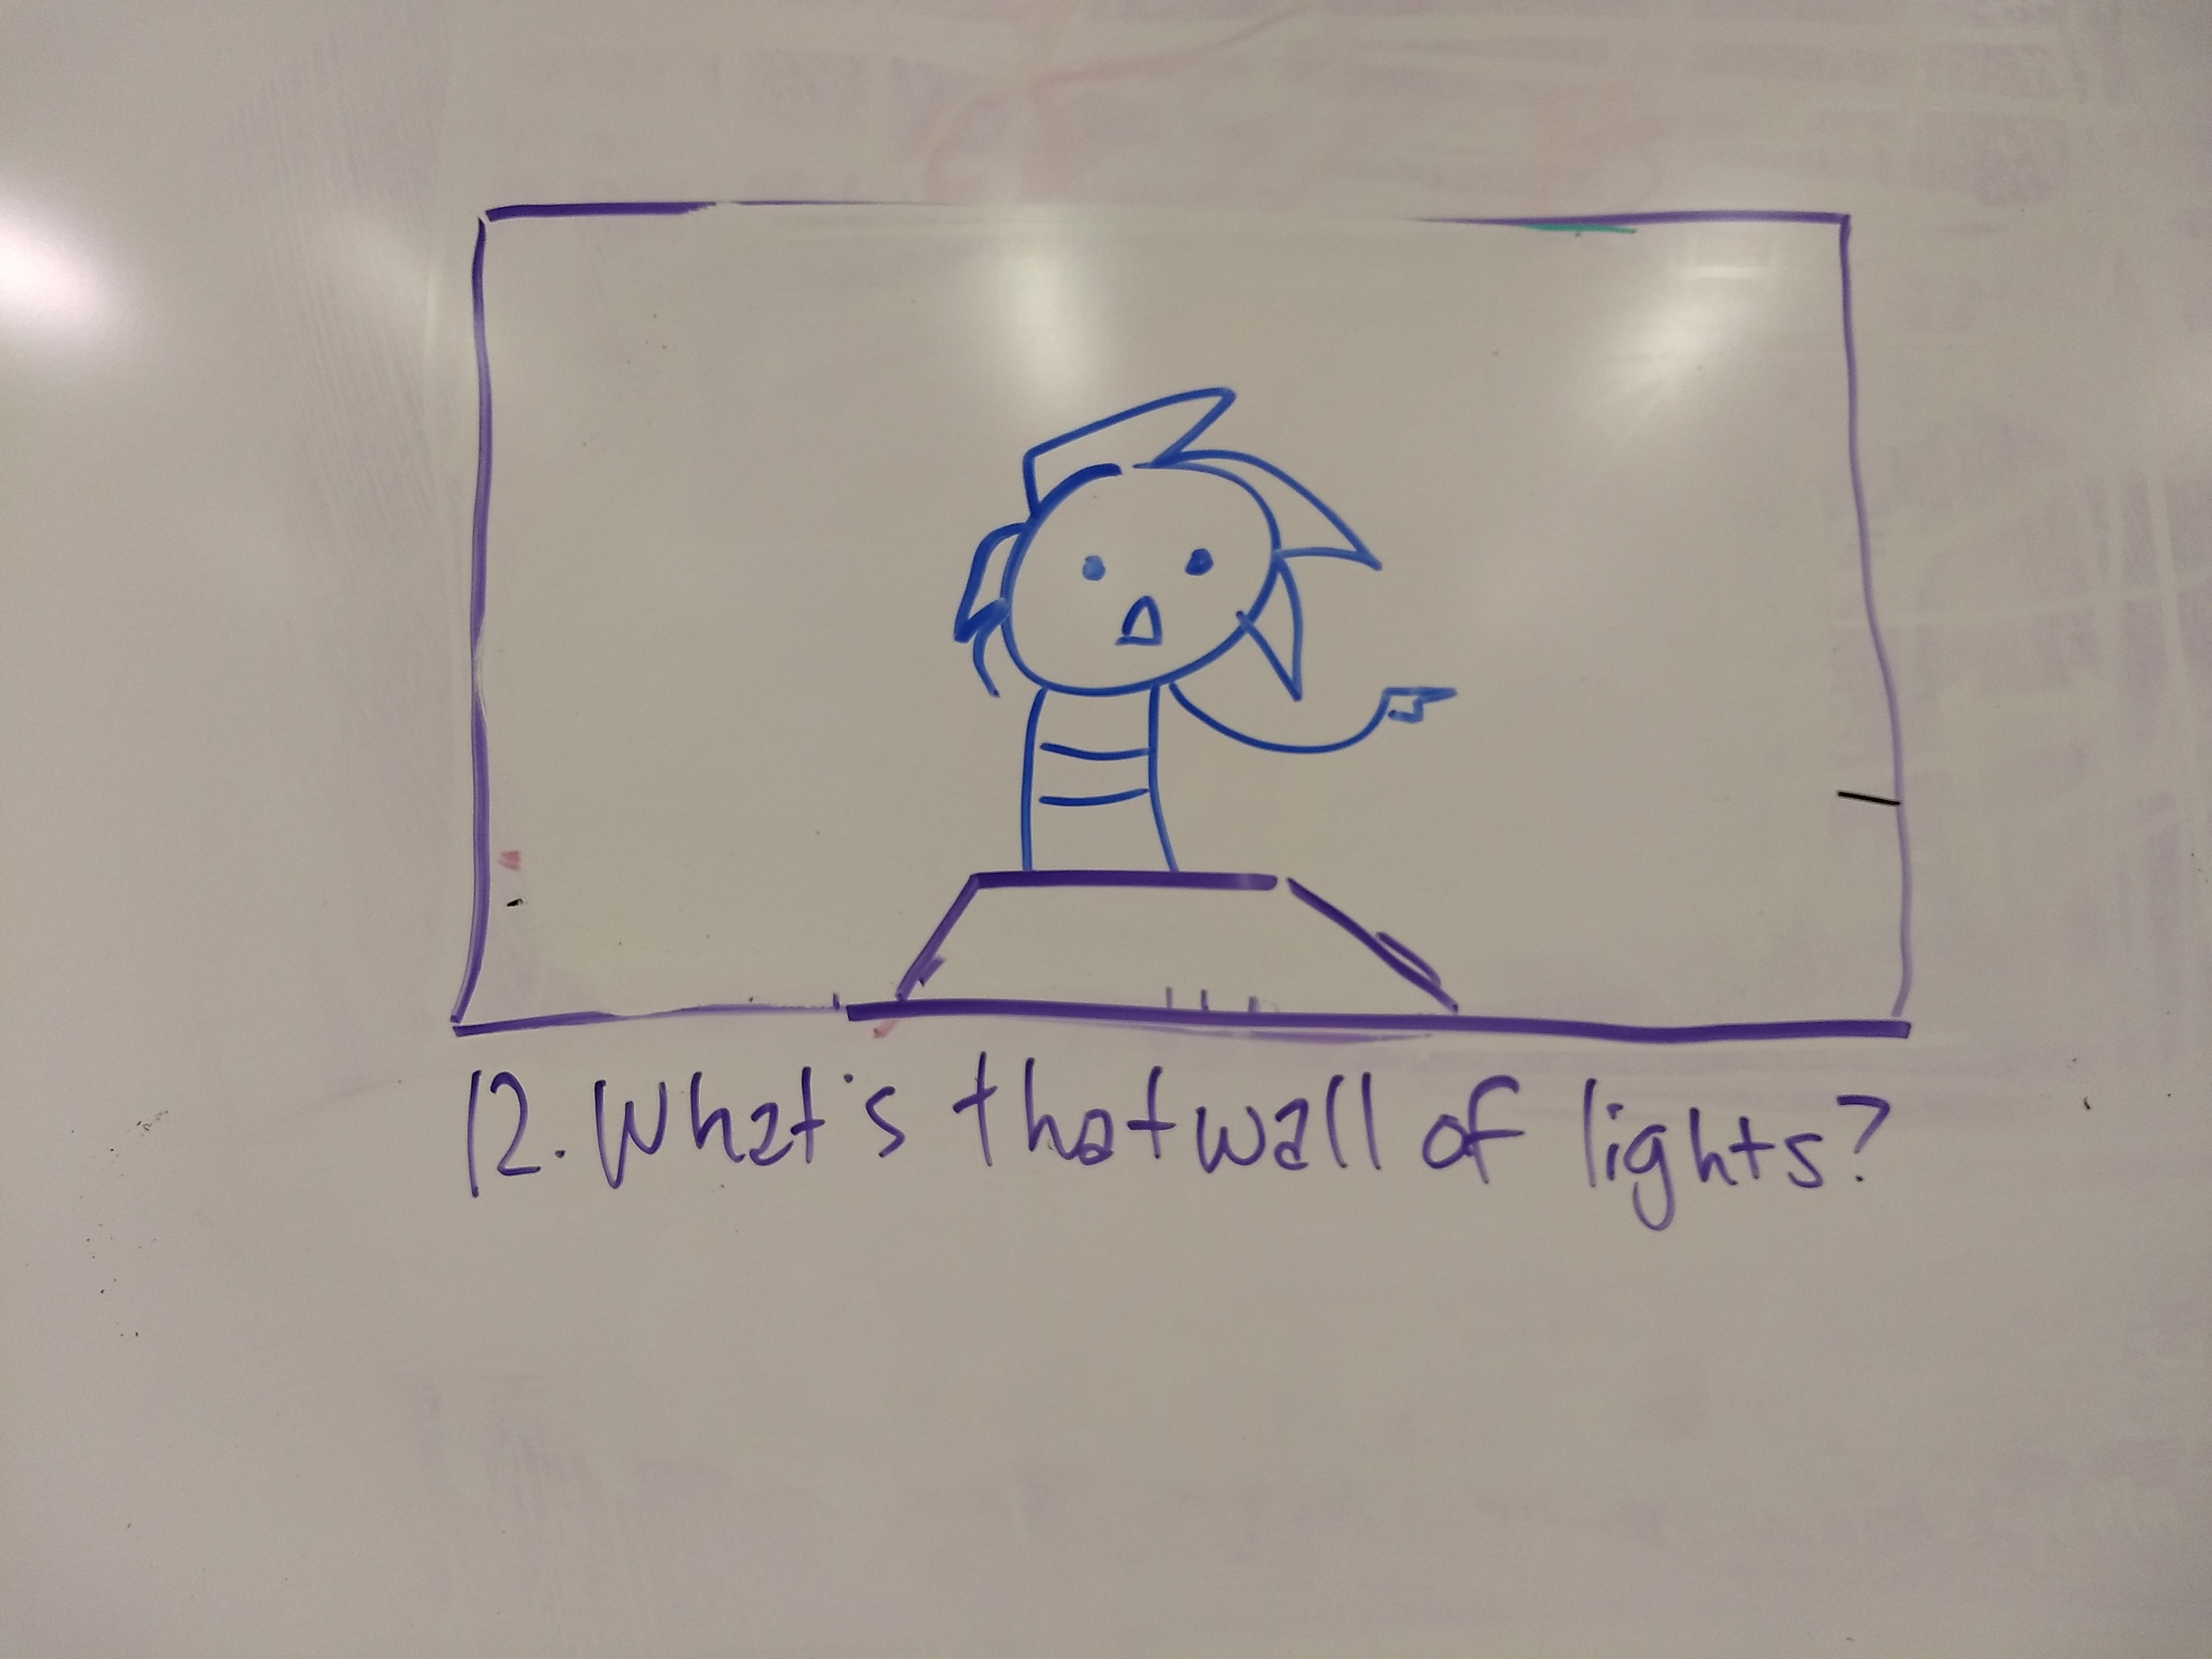 12. What's that wall of lights?